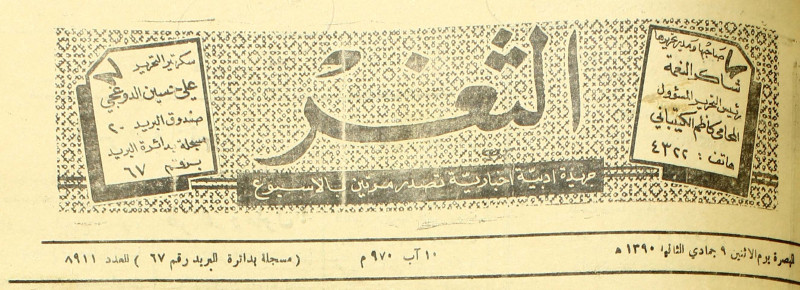 صاحبها ومدير تحريرها
شاكر النعمة
رئيس التحرير المسؤول
المحامي كاظم الكتيباني
هاتف : ٤٣٢٢
الثغر
جريدة ادبية اخبارية تصدر مرتين بالاسبوع
سكرتير التحرير
علي حسين الدوغجي
صندوق البريد ٢٠
مسجلة بدائرة البريد
برقم ٦٧
البصرة يوم الاثنين ٩ جمادي الثانية ١٣٩٠ هـ
١٠ آب ٩٧٠ م
( مسجلة بدائرة البريد رقم ٦٧ ) العدد ٨٩١١